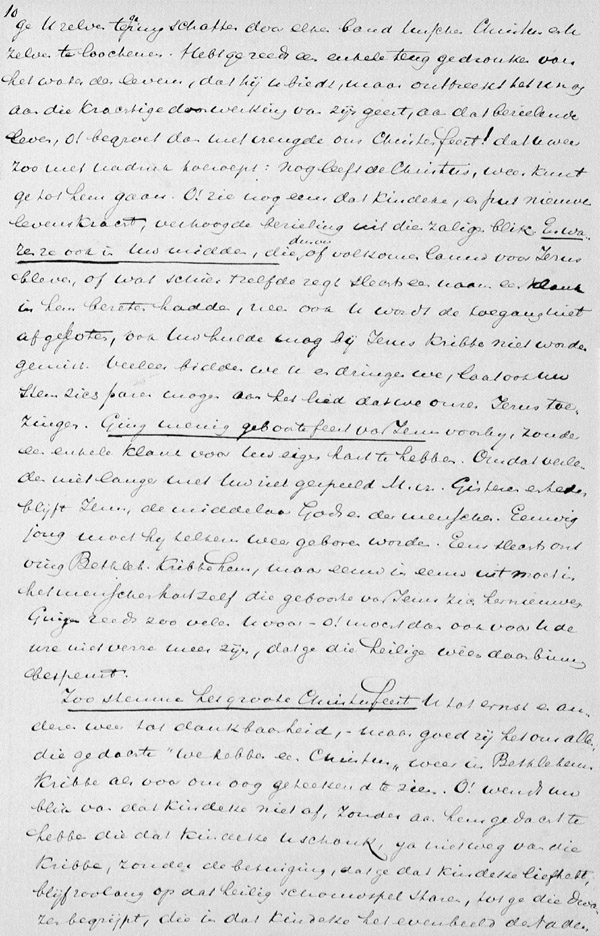 10
ge U zelven te schatten door elken band tusschen Christus en U
zelven te loochenen. Hebt ge reeds een enkele teug gedronken van
het water des levens, dat hij U biedt, maar ontbreekt het U nog
aan die krachtige doorwerking van zijn geest, aan dat bezielende
leven, o! begroet dan met vreugde ons Christusfeest! dat U weer
zoo met nadruk toeroept: nog leeft de Christus, weer kunt
ge tot hem gaan. O! zie nog eens dat kindeke, er spat nieuwe
levenskracht, verhoogde bezieling uit die zalige blik. En wa-
ren ze ook in Uw midden, die of volkomen laauw voor Jezus
bleven, of wat schier 't zelfde zegt slechts een naam een klank
in hem bezeten hadden, nee ook U wordt de toegang niet
afgesloten, ook Uw hulde mag bij Jezus kribbe niet worden
gemist. Veeleer bidden we U en dringen we, laat ook Uw
stem zich paren mogen aan het lied dat we onzen Jezus toe-
zingen. Ging menig geboortefeest van Jezus voorbij, zonder
een enkele klank voor Uw eigen hart te hebben. Omdat verle-
den niet langer met Uw niet gespeeld M. vr. Gisteren en heden
blijft Jezus, de middelaar Gods en der menschen. Eeuwig
jong moet hij telkens weer geboren worden. Eens slechts ont
ving Bethleh. kribbe hem, maar eeuw in eeuw uit moet in
het menschenhart zelf die geboorte van Jezus zich hernieuwen
Gingen reeds zoo velen U voor - o! moest dan ook voor U de
ure niet verre meer zijn, dat ge die heilige weën daarbinnen
bespeurt.
Zoo stemme het groote Christusfeest U tot ernst en an-
deren weer tot dankbaarheid, - maar goed zij het ons allen
die gedachte "we hebben een Christus" weer in Bethlehems
kribbe als voor ons oog geteekend te zien. O! wendt Uw
blik van dat kindeke niet af, zonder aan hem gedacht te
hebben die dat kindeke U schonk, ga niet weg van die
kribbe, zonder de betuiging, dat ge dat kindeke liefhebt,
blijf zoolang op dat heilig schouwspel staren, tot ge die dwa-
zen begrijpt, die in dat kindeke het evenbeeld des Vaders